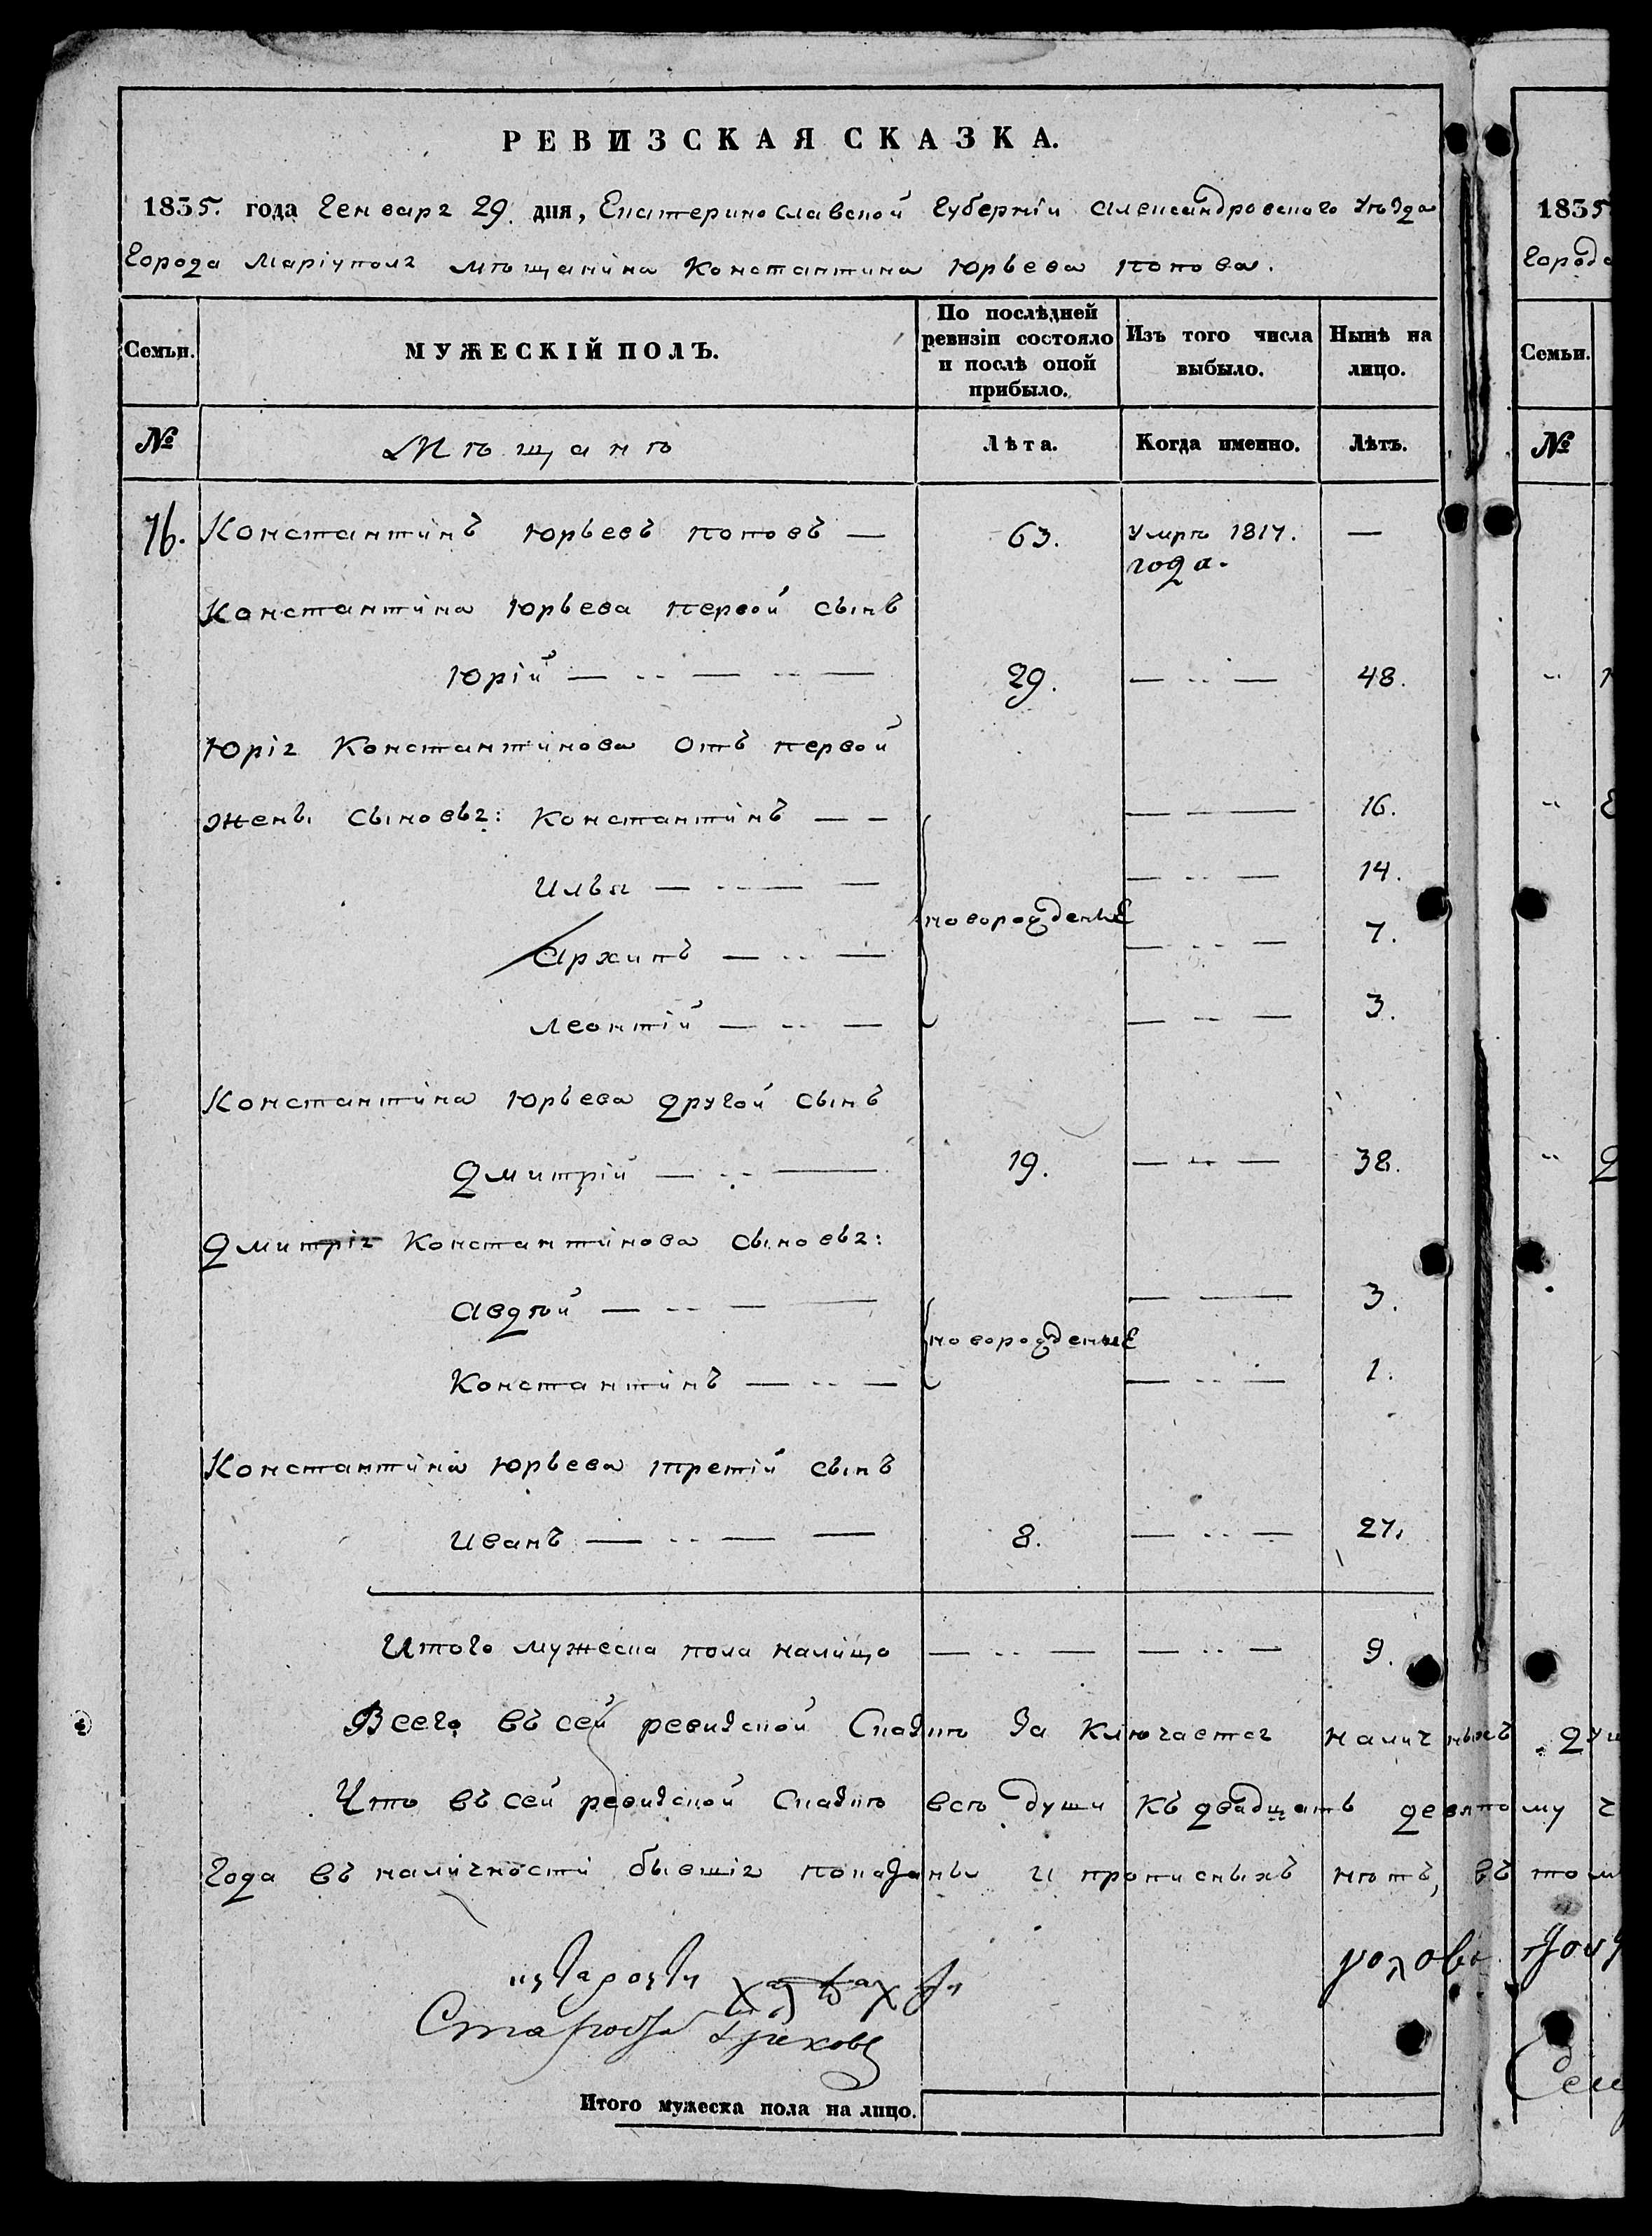 РЕВИЗСКАЯ СКАЗКА.
1835. года Генваря 29. дня, Екатеринославской Губерніи Александровского Уѣзда
Города Маріуполя мѣщанина Константина Юрьева Попова.
Семьи.
МУЖЕСКІЙ ПОЛЪ.
По послѣдней ревизіи состояло и послѣ оной прибыло.
Изъ того числа выбыло.
Нынѣ на лицо.
№ Мѣщанѣ Лѣта. Когда именно. Лѣтъ.
76. Константинъ Юрьевъ Поповъ — 63. Умрѣ 1817. —
года.
Константина Юрьева первой сынъ
Юрій — .. — .. — 29. — .. — 48.
Юрія Константинова отъ первой
жены сыновья: Константинъ — — — — 16.
Илья — .. — — — .. — 14.
новорожденые
Архипъ — .. — — .. — 7.
Леонтій — .. — — .. — 3.
Константина Юрьева другой сынъ
Дмитрій — .. — 19. — .. — 38.
Дмитрія Константинова сыновья:
Авдѣй — .. — — — — 3.
новорожденые
Константинъ — .. — — .. — 1.
Константина Юрьева третій сынъ
Иванъ — .. — — 8. — .. — 27.
Итого мужеска пола налицо — .. — — .. — 9.
Всего въ сей ревизской Сказкѣ заключается наличныхъ
Что въ сей ревизской Сказкѣ всѣ души къ двадцать девятому
Года въ наличности бывшія показаны и прописныхъ нѣтъ, въ том
Староста
Итого мужеска пола на лицо.
1835
Города
Семьи.
№